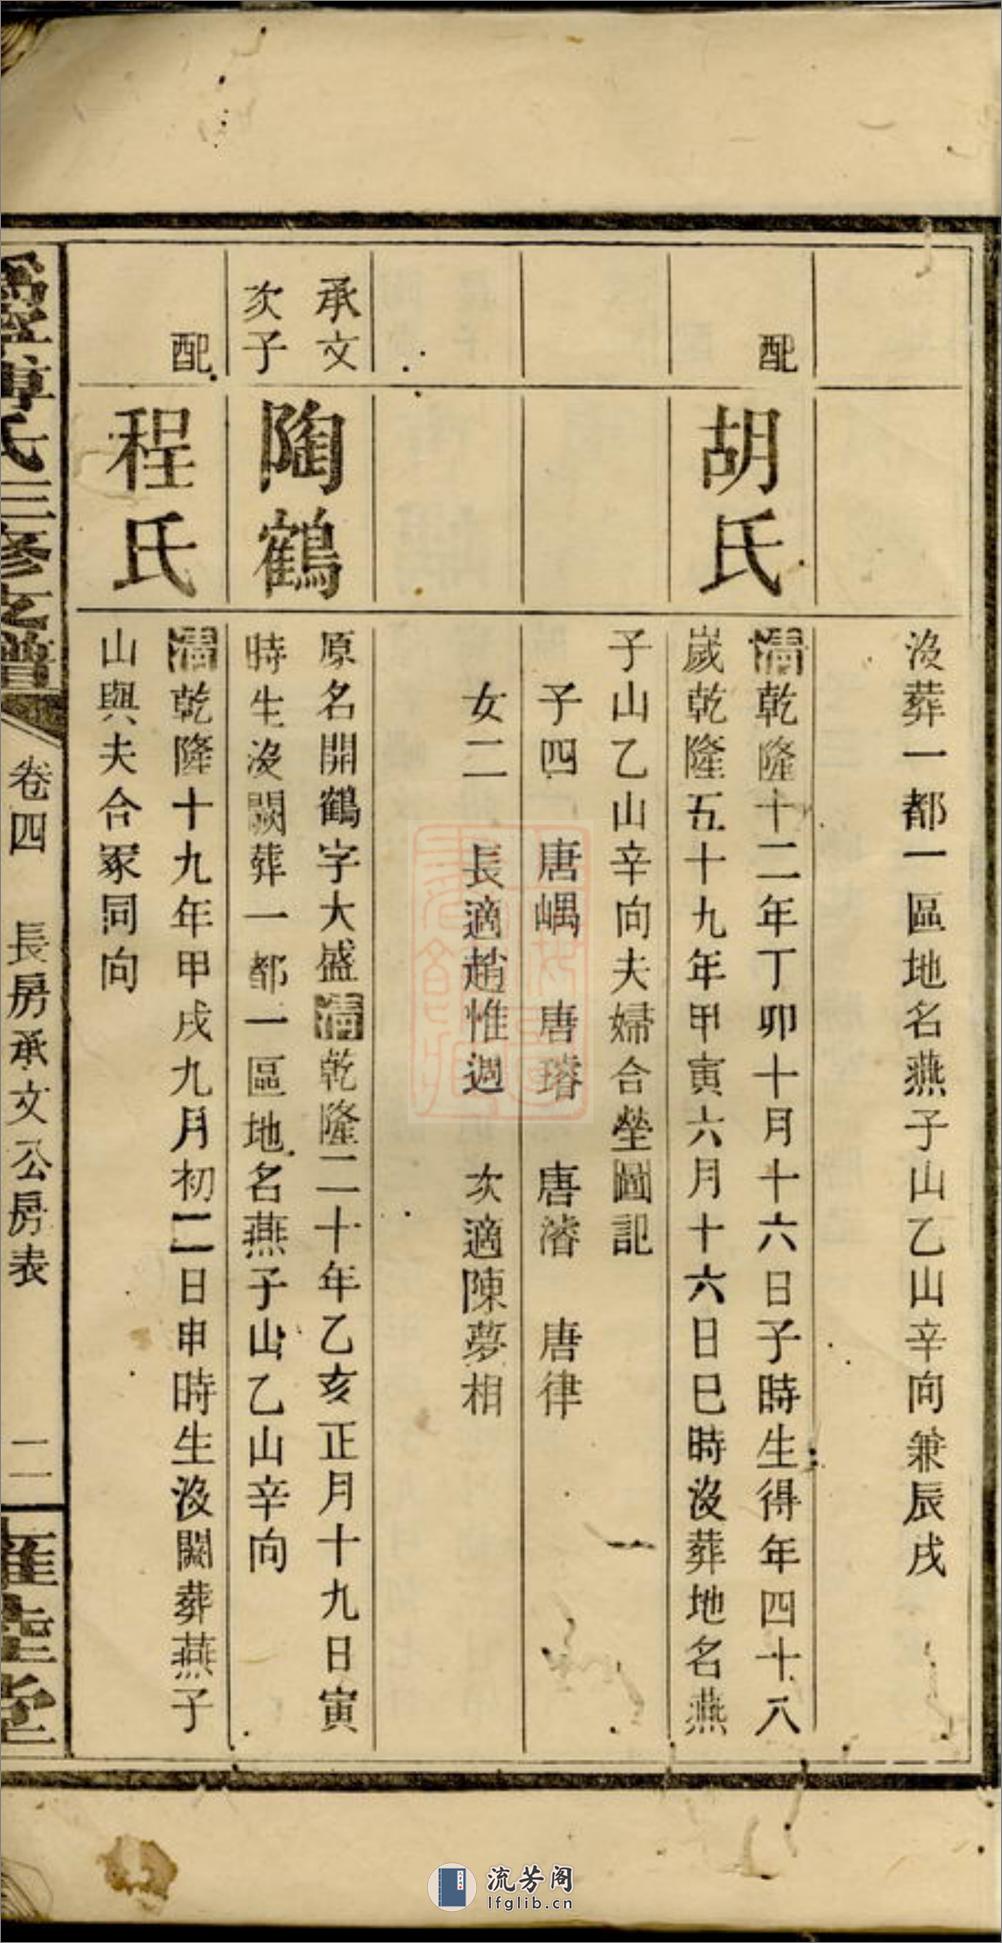 沒葬一都一區地名燕子山乙山辛向兼辰戌
配
胡氏
清乾隆十二年丁卯十月十六日子時生得年四十八
嵗乾隆五十九年甲寅六月十六日巳時沒葬地名燕
子山乙山辛向夫婦合塋圖記
子四 唐嵎 唐璿 唐濬 唐律
女二 長適趙惟週 次適陳夢相
承文
次子
陶鶴
原名開鶴字大盛清乾隆二十年乙亥正月十九日寅
時生沒闕葬一都一區地名燕子山乙山辛向
配
程氏
清乾隆十九年甲戌九月初二日申時生沒闕葬燕子
山與夫合冢同向
氏三修支譜
卷四 長房承文公房表 二
流芳阁
lfglib.cn